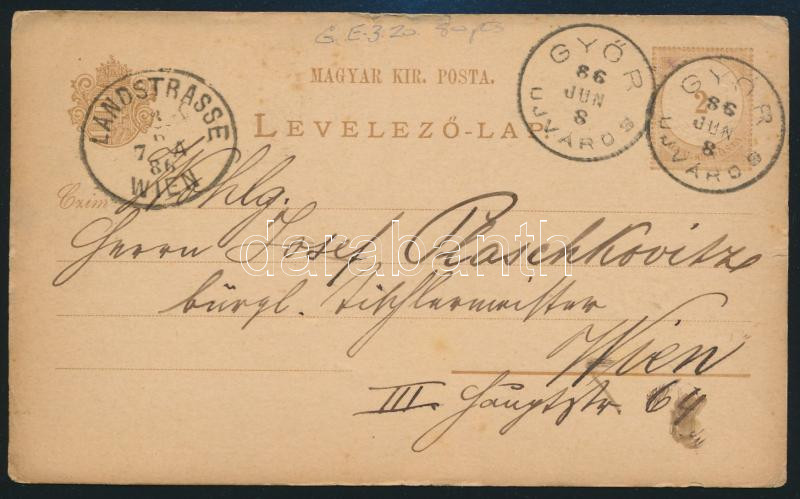 G. E-3.20.
MAGYAR KIR. POSTA.
LEVELEZŐ-LAP.
GYŐR
86
JUN
8
UJVÁROS
GYŐR
86
JUN
8
UJVÁROS
2
LANDSTRASSE
7
86
WIEN
Czim
Wohlg.
Herrn Josef Raschkovitz
bürgl. Tischlermeister
Wien
III. Hauptstr. 64
darabanth